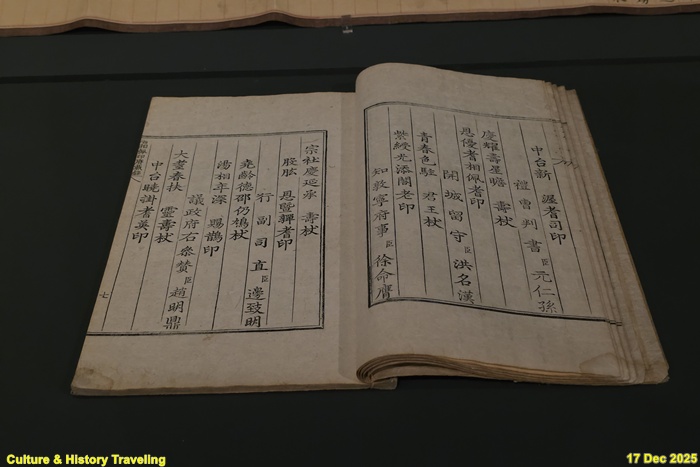 中台新 渥耆司印
禮曹判書臣元仁孫
慶耀壽星瞻 壽杖
恩優耆相佩耆印
開城留守臣洪名漢
青春色駐 君王杖
紫綬光添閣老印
知敦寧府事臣徐命膺
宗社慶延承 壽杖
股肱 恩耆印
行副司直臣邊致明
堯齡德邵仍鳩杖
湯相年深 賜鵲印
議政府右參贊臣趙明鼎
大耋春扶 靈壽杖
中台曉掛耆英印
七
Culture & History Traveling
17 Dec 2025